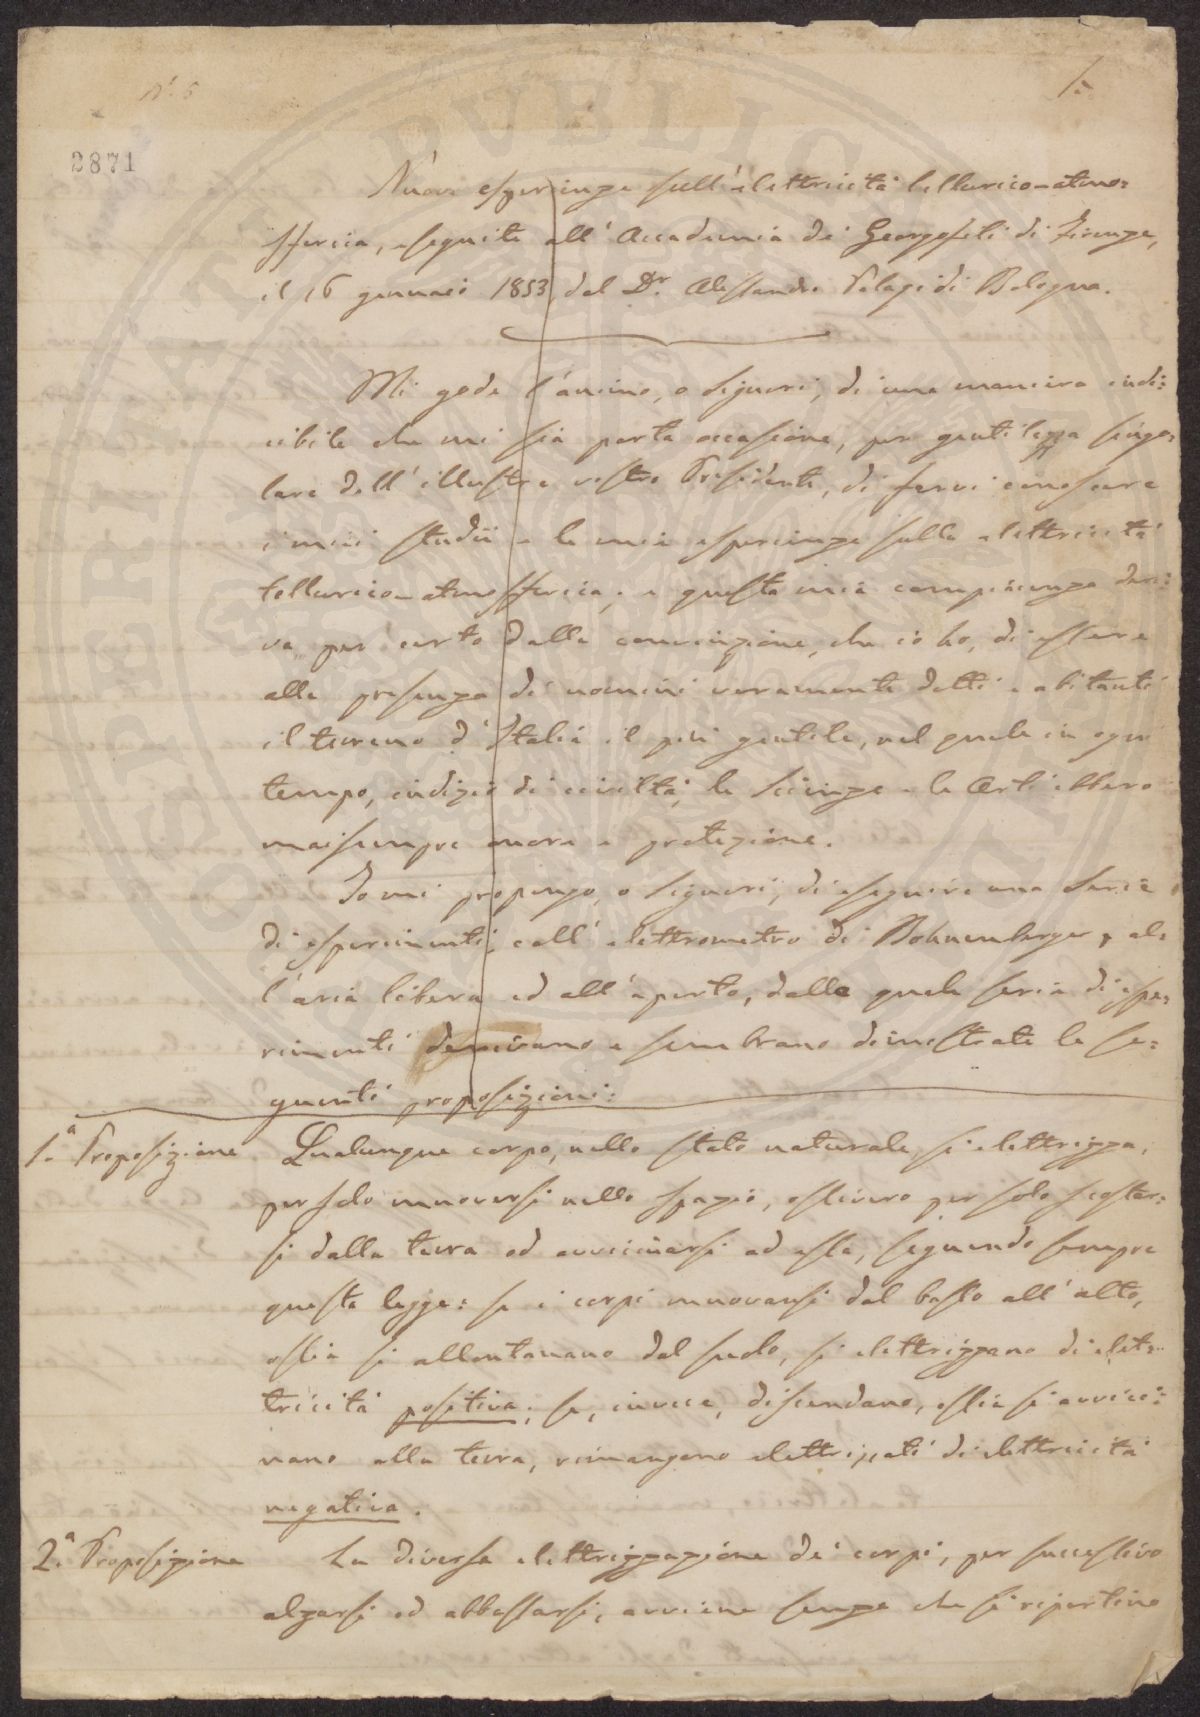 N.° 5
1.
2871
Nuove esperienze sull'elettricità tellurico-atmo=
sferica, eseguite all'Accademia dei Georgofili di Firenze,
il 16 gennaio 1853, dal Dr. Alessandro Palagi di Bologna.
Mi gode l'animo, o Signori, di una maniera indi=
cibile che mi sia porta occasione, per gentilezza singo=
lare dell'illustre vostro Presidente, di farvi conoscere
i miei studii e le mie esperienze sulla elettricità
tellurico-atmosferica; e questa mia compiacenza deri=
va per certo dalla convinzione, che io ho, di essere
alla presenza di uomini veramente dotti e abitanti
il terreno d'Italia il più gentile, nel quale in ogni
tempo, indizio di civiltà, le Scienze e le Arti ebbero
maisempre onore e protezione.
Io mi propongo, o Signori, di eseguire una Serie
di esperimenti, coll'elettrometro di Bohnenberger, al=
l'aria libera ed all'aperto, dalla quale serie di espe=
rimenti derivano e sembrano dimostrate le se=
guenti proposizioni:
1.ª Proposizione Qualunque corpo, nello stato naturale, si elettrizza,
per solo muoversi nello spazio, ossivero per solo scostar=
si dalla terra od avvicinarsi ad essa, seguendo sempre
questa legge: se i corpi muovansi dal basso all'alto,
ossia si allontanano dal suolo, si elettrizzano di elet=
tricità positiva; se, invece, discendano, ossia si avvici=
nano alla terra, rimangono elettrizzati di elettricità
negativa.
2.ª Proposizione La diversa elettrizzazione dei corpi, per successivo
alzarsi ed abbassarsi, avviene senza che si ripartino